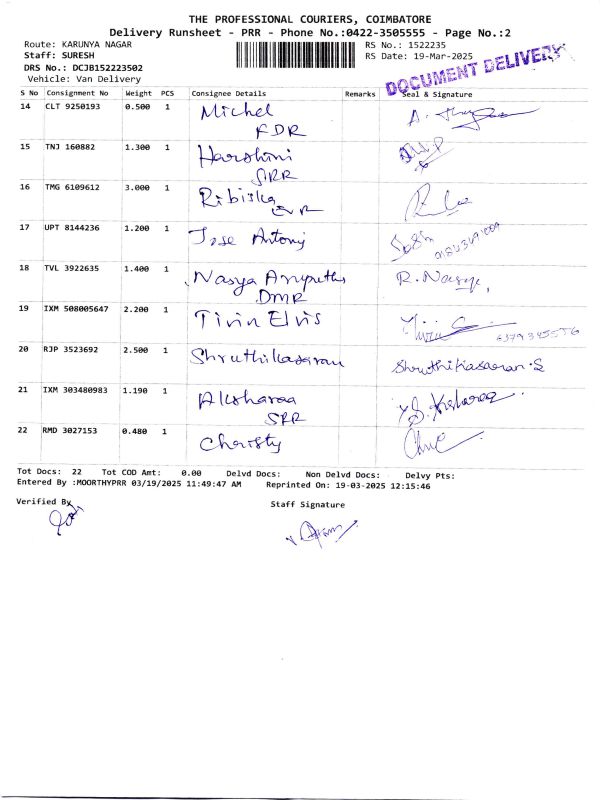 THE PROFESSIONAL COURIERS, COIMBATORE
Delivery Runsheet - PRR - Phone No.:0422-3505555 - Page No.:2
Route: KARUNYA NAGAR RS No.: 1522235
Staff: SURESH RS Date: 19-Mar-2025
DRS No.: DCJB152223502
Vehicle: Van Delivery
DOCUMENT DELIVERY
S No Consignment No Weight PCS Consignee Details Remarks Seal & Signature
14 CLT 9250193 0.500 1 Michel
FDR
15 TNJ 160882 1.300 1 Harshini
SRR
16 TMG 6109612 3.000 1 Ribiska
EVR
17 UPT 8144236 1.200 1 Jose Antony
18 TVL 3922635 1.400 1 Nasya
DMR
19 IXM 508005647 2.200 1 Tivin Elvis
20 RJP 3523692 2.500 1 Shruthikasaran Shruthikasaran.S
21 IXM 303480983 1.190 1 Aksharaa
SRR
22 RMD 3027153 0.480 1 Christy
Tot Docs: 22 Tot COD Amt: 0.00 Delvd Docs: Non Delvd Docs: Delvy Pts:
Entered By :MOORTHYPRR 03/19/2025 11:49:47 AM Reprinted On: 19-03-2025 12:15:46
Verified By
Staff Signature